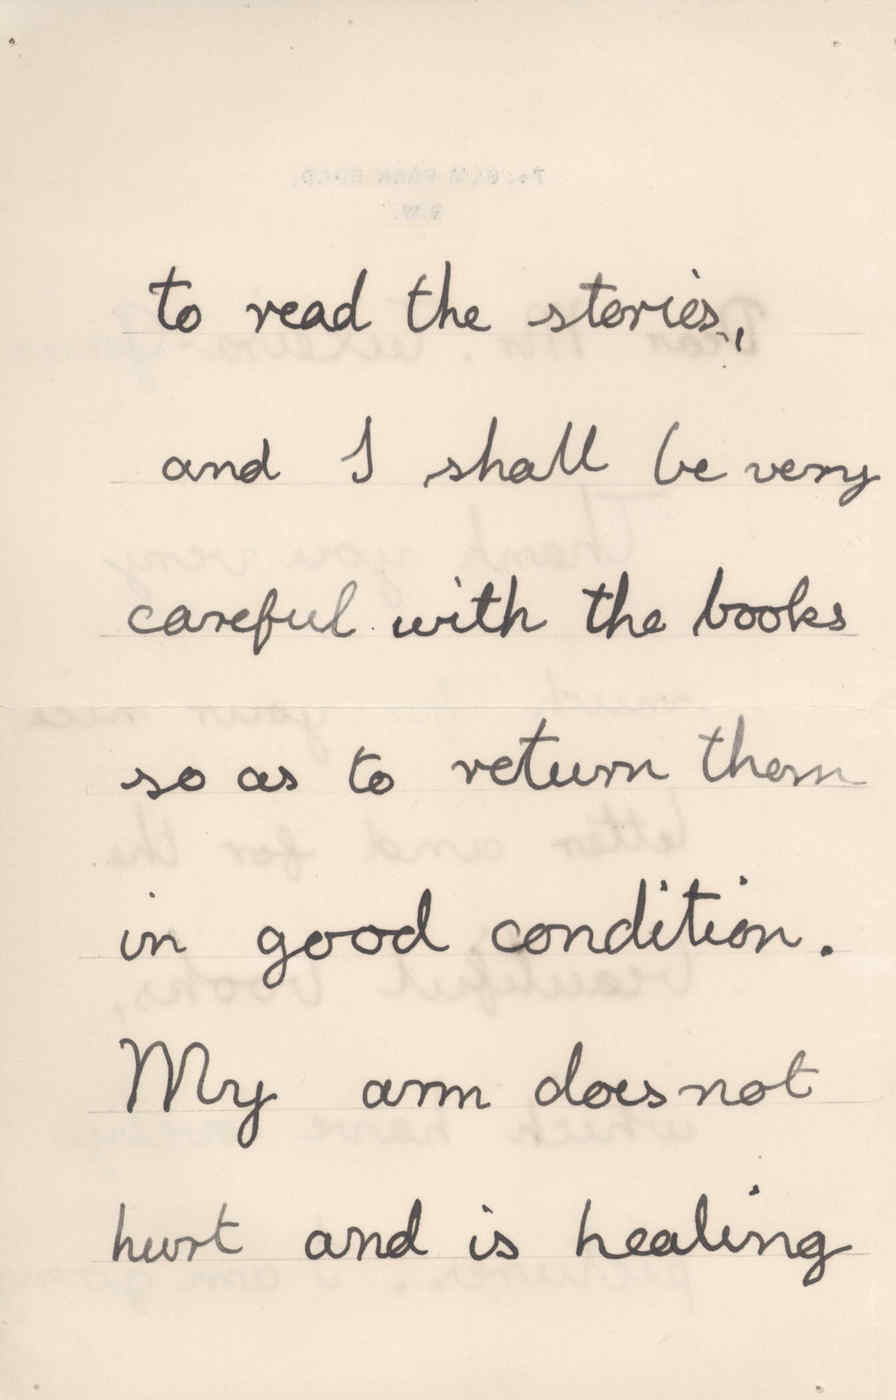 to read the stories,
and I shall be very
careful with the books
so as to return them
in good condition.
My arm does not
hurt and is healing